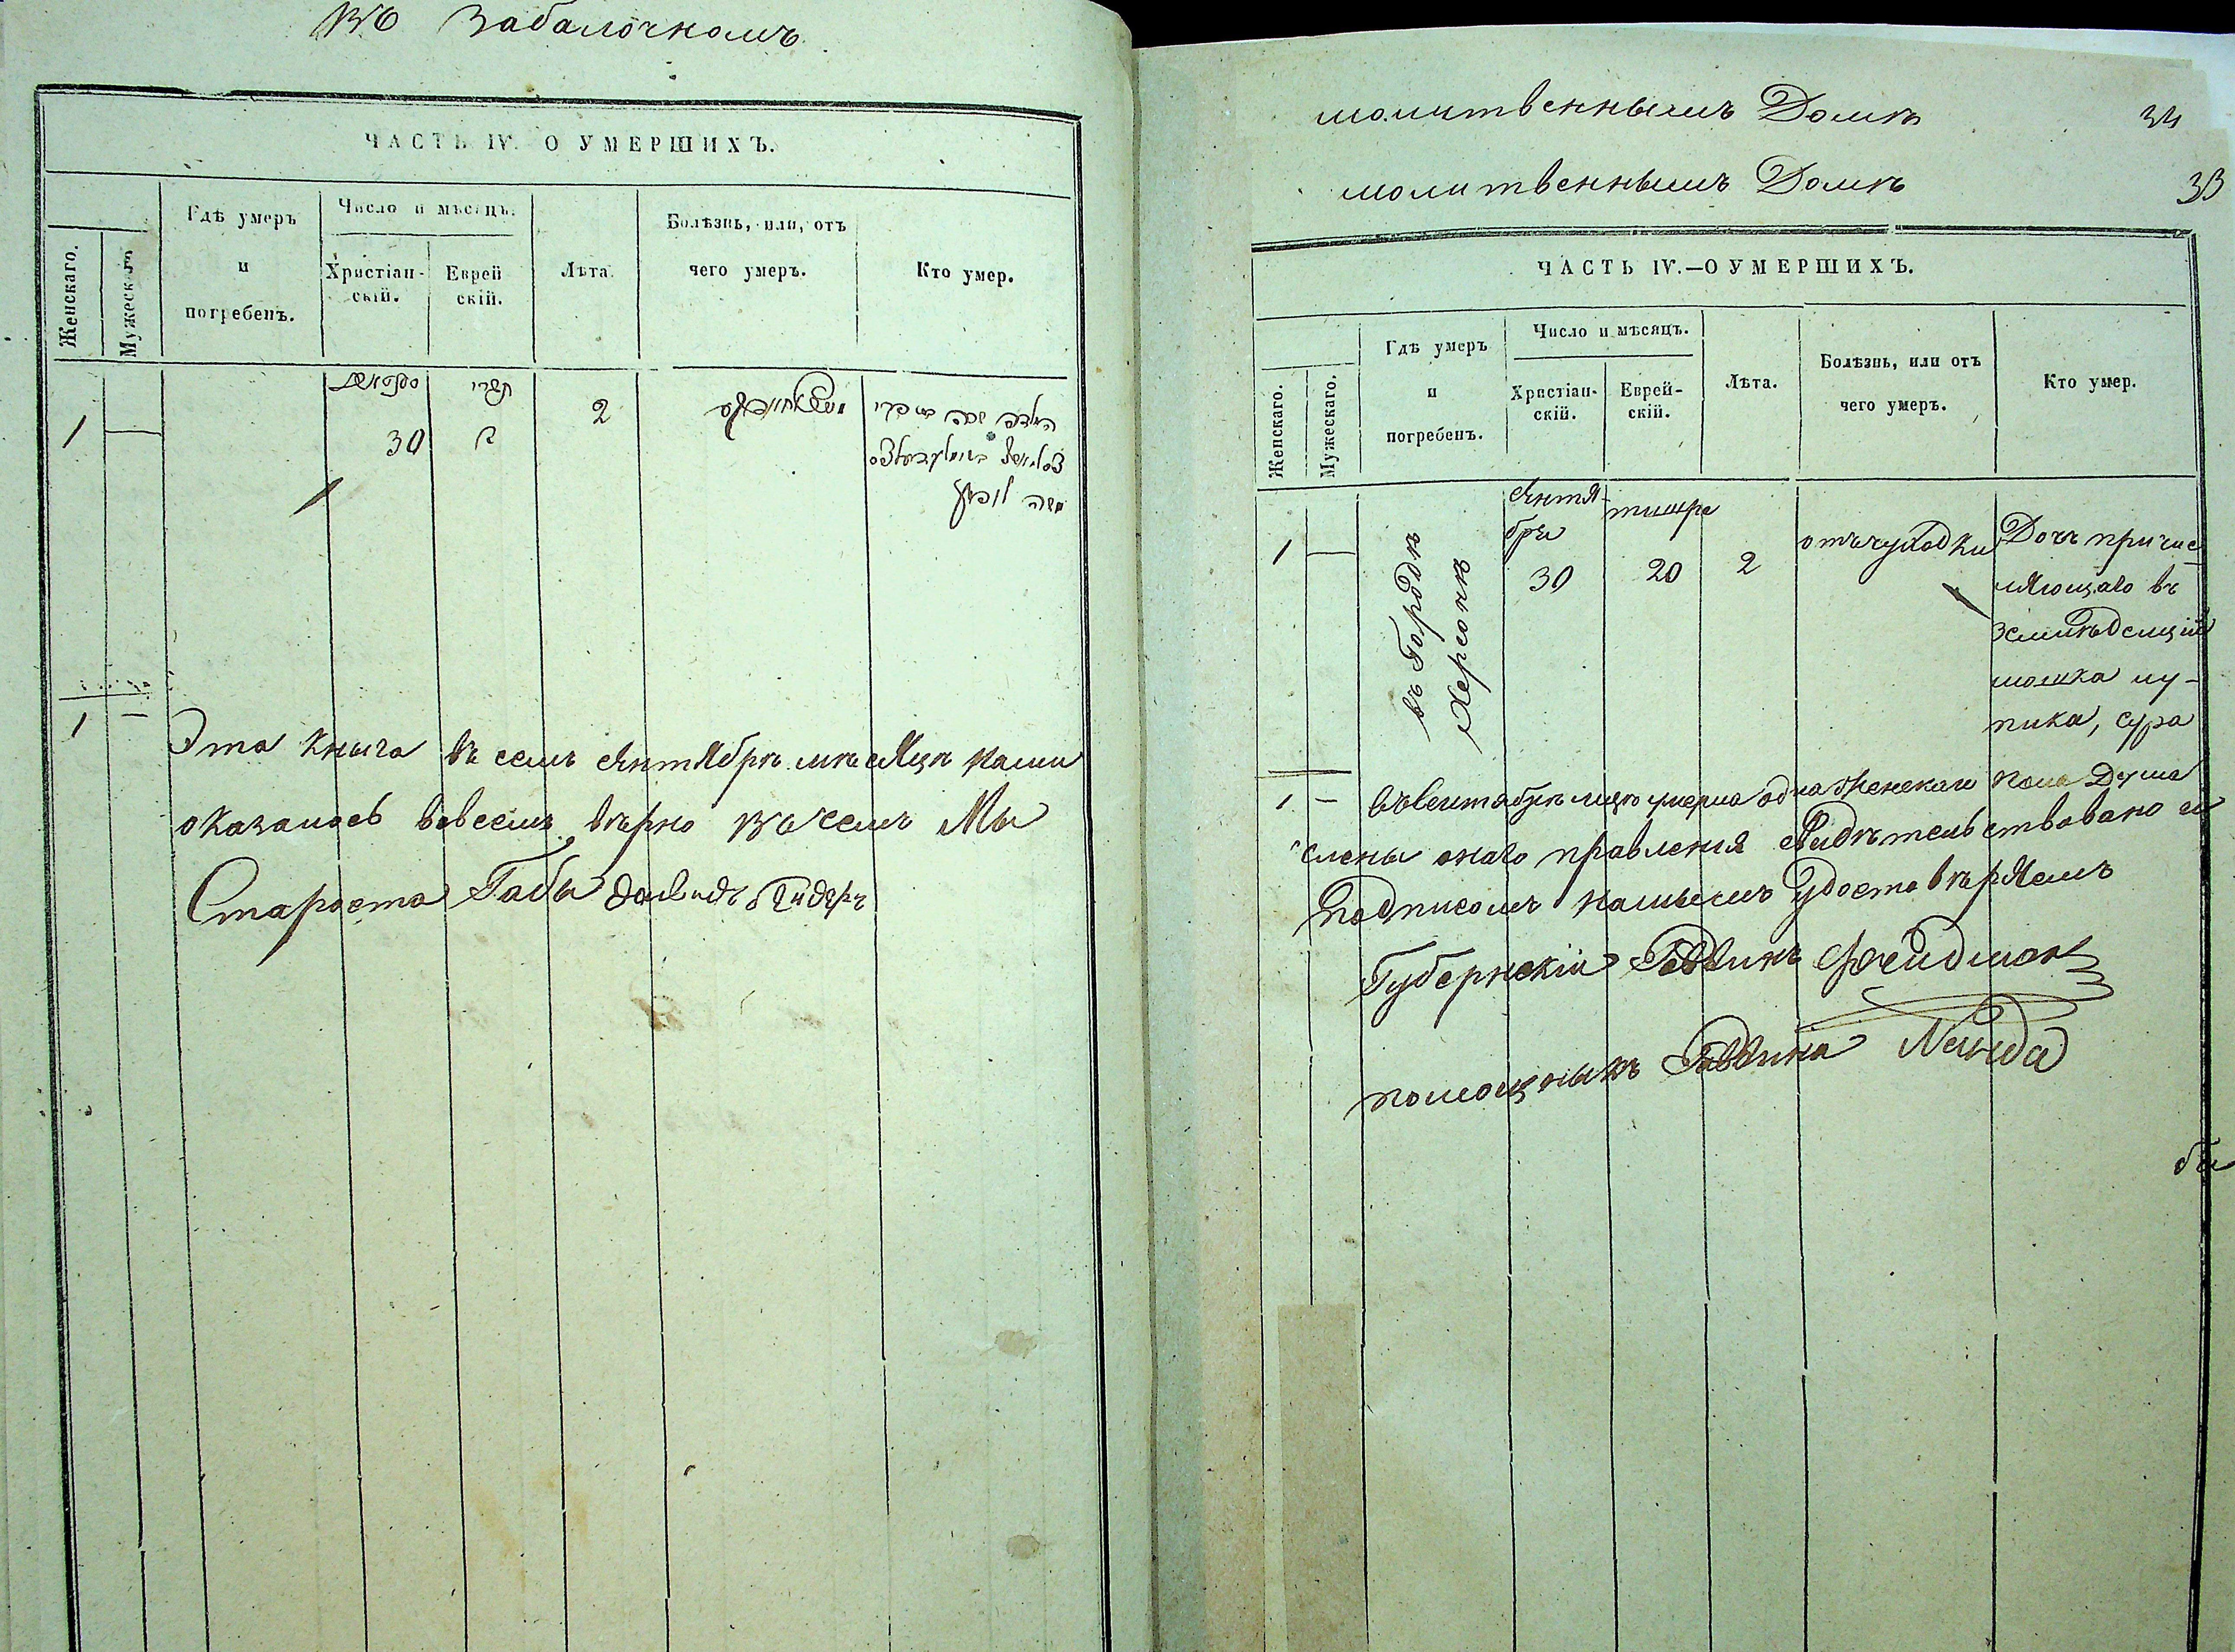 въ Забалочномъ
ЧАСТЬ IV. О УМЕРШИХЪ.
Женскаго.
Мужескаго
Гдѣ умеръ
и
погребенъ.
Число и мѣсяцъ.
Христіан-
скій.
Еврей
скій.
Лѣта.
Болѣзнь, или, отъ
чего умеръ.
Кто умер.
תשרי
1
30
כ
2
משה
1 —
Эта книга въ семъ сентябрѣ мѣсяцѣ нами
оказалось вовсемъ вѣрно въ чемъ Мы
Староста Габы Давидъ
молитвеннымъ Домѣ
34
молитвеннымъ Домѣ
33
ЧАСТЬ IV.—О УМЕРШИХЪ.
Женскаго.
Мужескаго.
Гдѣ умеръ
и
погребенъ.
Число и мѣсяцъ.
Христіан-
скій.
Еврей-
скій.
Лѣта.
Болѣзнь, или отъ
чего умеръ.
Кто умер.
1
въ Городѣ
Херсонѣ
сентя-
бри
30
тишре
20
2
отъ
Дочь причис
ляющаго въ
мошка лу-
пика, сура
1 — въ сентябрѣ мцѣ умерла одна женскаго пола Душа
члены онаго правленія свидѣтельствовано и
подписомъ нашымъ удостовѣряемъ
Губернскій Раввинъ Фрейдман
помощникъ Раввина